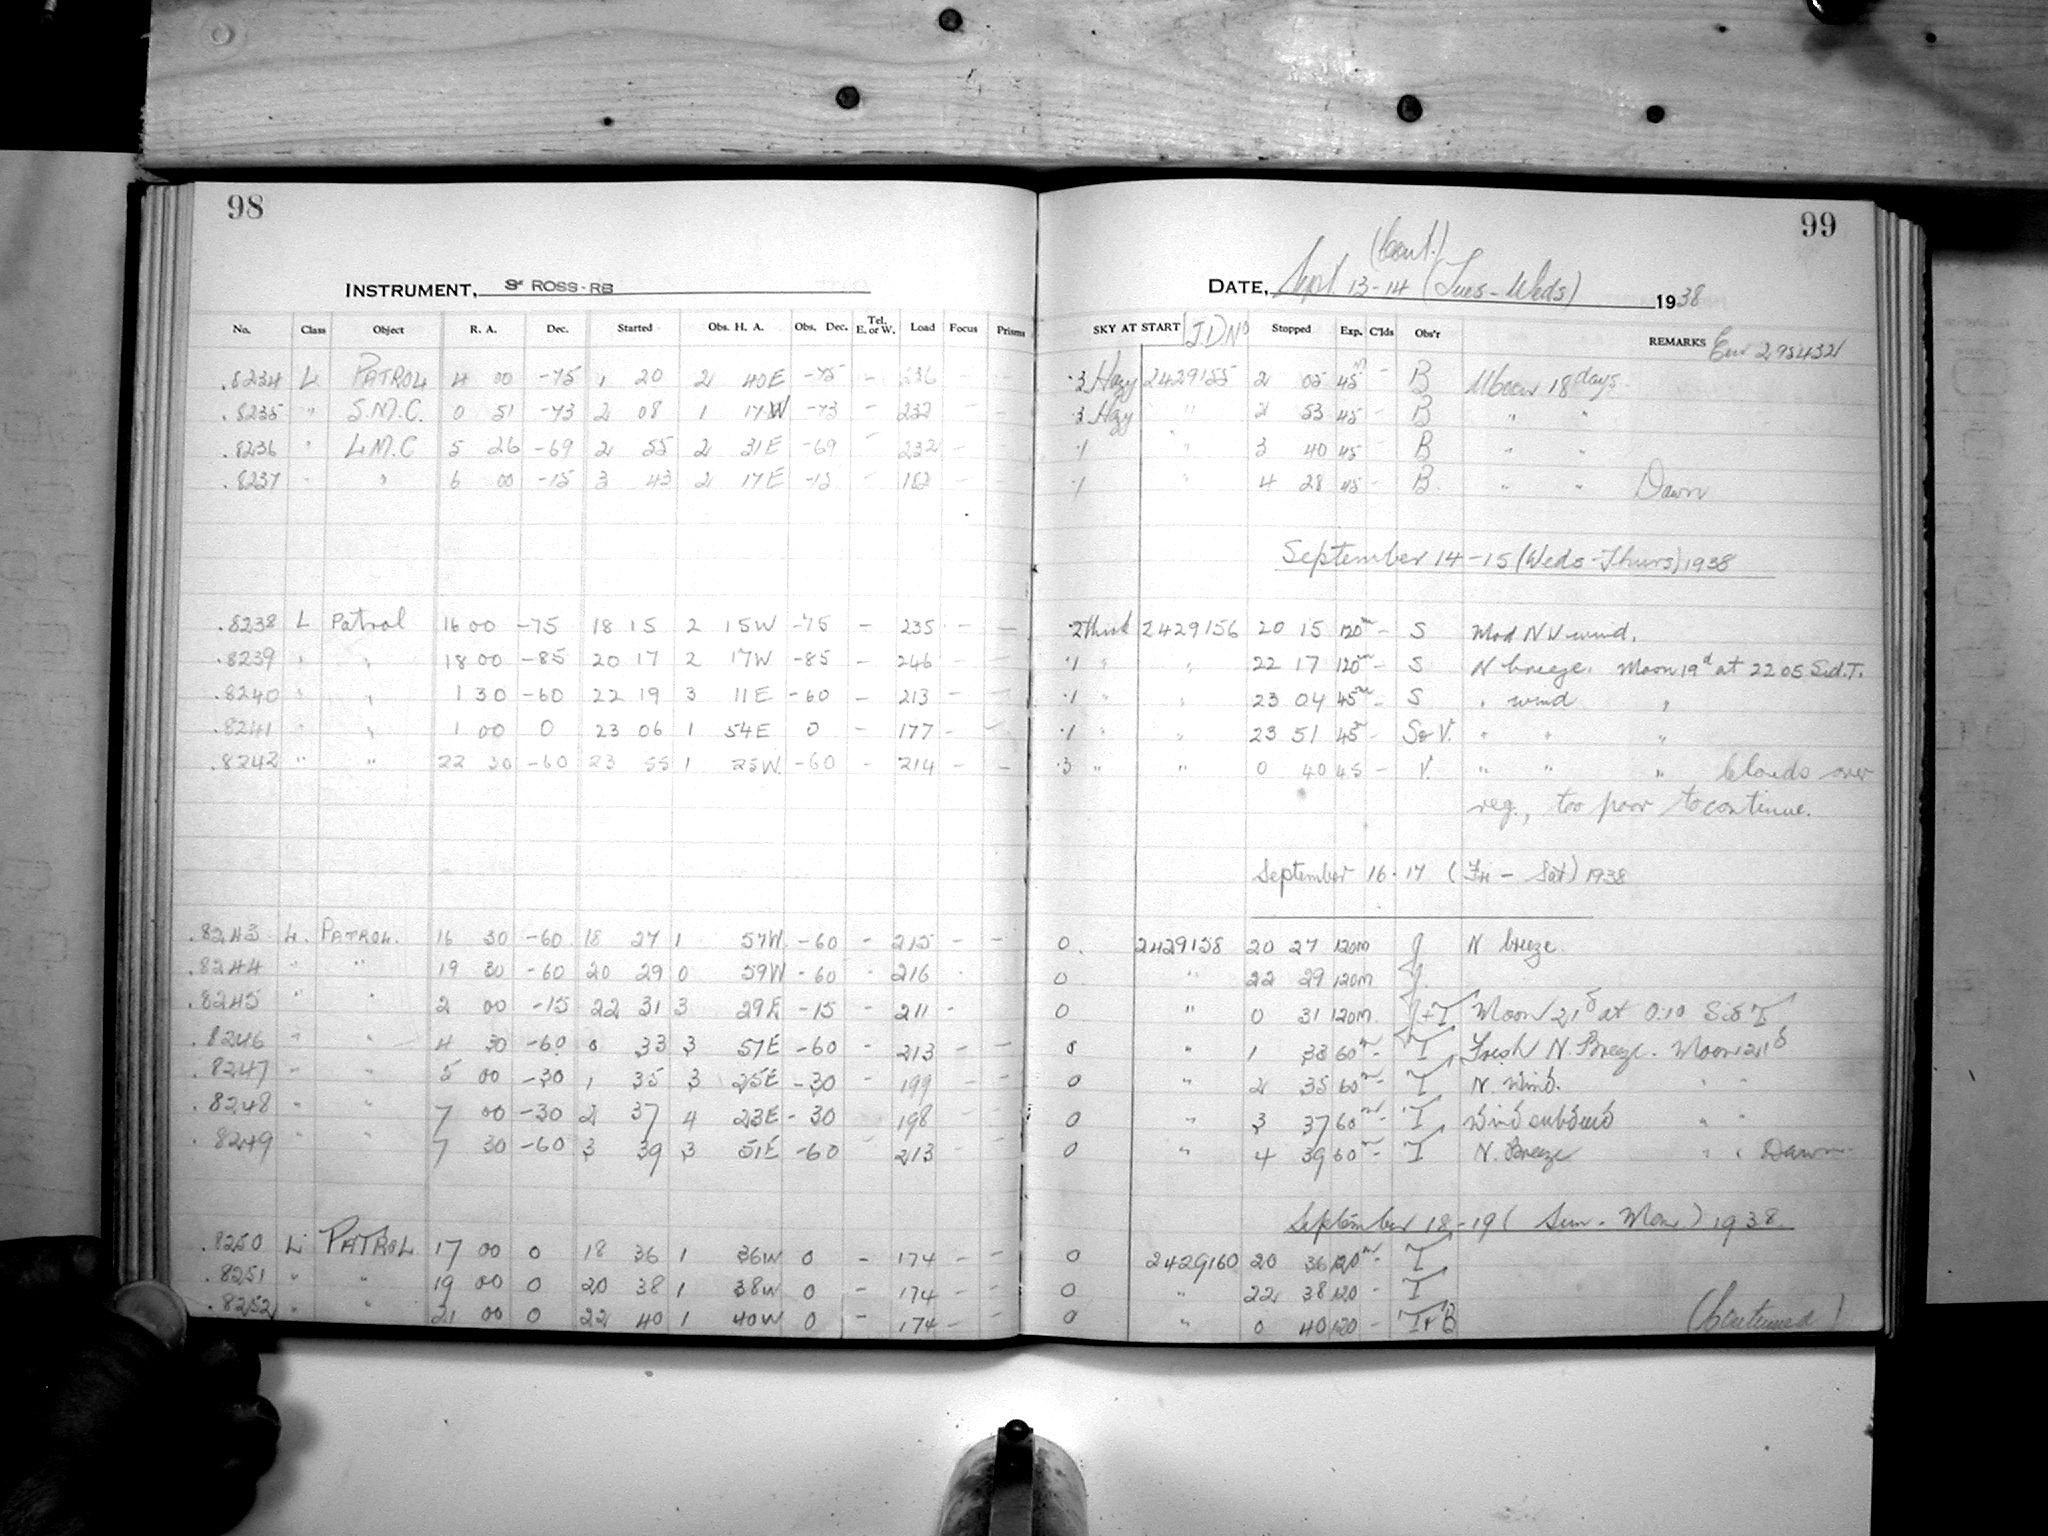 98
INSTRUMENT, 3" ROSS-RB
No. Class Object R. A. Dec. Started Obs. H. A. Obs. Dec. Tel. E. or W. Load Focus Prisms
.8234 L PATROL 4 00 -75 1 20 2 40E -75 - 236 - -
.8235 " S.M.C. 0 51 -73 2 08 1 17W -73 - 232 - -
.8236 " L.M.C 5 26 -69 2 55 2 31E -69 - 232 - -
.8237 " " 6 00 -15 3 43 2 17E -15 - 182 - -
.8238 L Patrol 16 00 -75 18 15 2 15W -75 - 235 - -
.8239 " " 18 00 -85 20 17 2 17W -85 - 246 - -
.8240 " " 1 30 -60 22 19 3 11E -60 - 213 - -
.8241 " " 1 00 0 23 06 1 54E 0 - 177 - -
.8242 " " 22 30 -60 23 55 1 25W. -60 - 214 - -
.8243 L. PATROL. 16 30 -60 18 27 1 57W. -60 - 215 - -
.8244 " " 19 30 -60 20 29 0 59W -60 - 216 -
.8245 " " 2 00 -15 22 31 3 29E -15 - 211 -
.8246 " " 4 30 -60 0 33 3 57E -60 - 213 - -
.8247 " " 5 00 -30 1 35 3 25E -30 - 199 - -
.8248 " " 7 00 -30 2 37 4 23E -30 - 198 - -
.8249 " " 7 30 -60 3 39 3 51E -60 - 213 - -
.8250 L PATROL 17 00 0 18 36 1 36W 0 - 174 - -
.8251 " " 19 00 0 20 38 1 38W 0 - 174 - -
.8252 " " 21 00 0 22 40 1 40W 0 - 174 - -
99
(Cont.)
DATE, Sept 13-14 (Tues-Weds) 1938
SKY AT START J.D.No Stopped Exp. C'lds Obs'r REMARKS 2954321
.3 Hazy 2429155 2 05 45m - B Moon 18 days.
.3 Hazy " 2 53 45 - B " "
.1 " 3 40 45 - B " "
.1 " 4 28 45 - B. " " Dawn
September 14-15 (Weds-Thurs) 1938
.2 thick 2429156 20 15 120m - S Mod NW wind.
.1 " " 22 17 120m - S N breeze. Moon 19d at 22 05 Sid.T.
.1 " " 23 04 45m - S " wind "
.1 " " 23 51 45m - S & V. " " "
.3 " " 0 40 45 - V. " " " Clouds over
reg., too poor to continue.
September 16-17 (Fri - Sat) 1938
0. 2429158 20 27 120m J N breeze.
0 " 22 29 120m J.
0 " 0 31 120m. J+T Moon 21d at 0.10 Sid T
0 " 1 33 60m - T Fresh N. Breeze. Moon 21d
0 " 2 35 60m - T N. Wind. " "
0 " 3 37 60m - T Wind subsided " "
0 " 4 39 60m - T N. Breeze " " Dawn
September 18-19 (Sun. - Mon.) 1938.
0 2429160 20 36 120m - T
0 " 22 38 120 - T
0 " 0 40 120 - T+B
(Continued)